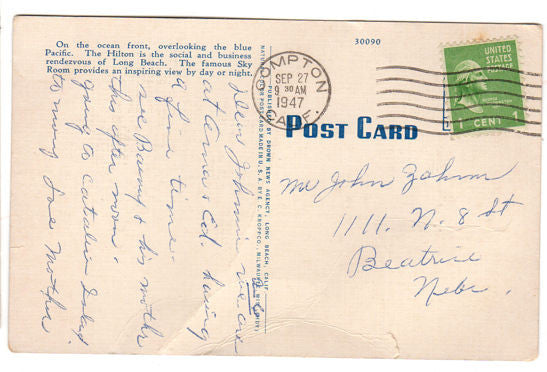 On the ocean front, overlooking the blue
Pacific. The Hilton is the social and business
rendezvous of Long Beach. The famous Sky
Room provides an inspiring view by day or night.
30090
COMPTON
SEP 27
9 30 AM
1947
CALIF.
UNITED
STATES
POSTAGE
1 CENT 1
POST CARD
PUBLISHED BY BROWN NEWS AGENCY, LONG BEACH, CALIF.
MADE IN U.S.A. BY E. C. KROPP CO., MILWAUKEE, WIS.
Dear Johnie we are
at Anna & Ed. having
a fine time.
see Barry & his mother
this after noon.
going to Catalina Island
to morrow Love Mother
Mr John Zahm
1111. N. 8 St
Beatrice
Nebr.